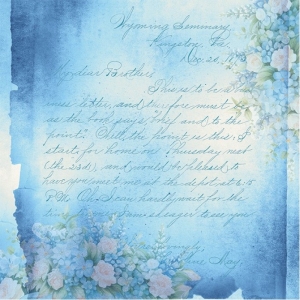 Wyoming Seminary
Kingston, Pa.
Dec. 20, 18
My dear Brother:
This is to be a bus
iness letter, and therefore must
as the book says "try and to the
point." Well, the point is this, I
start for home on Thursday next
(the 22d), and would be pleased to
have you meet me at the depot at 6.5
P.M. Oh I can hardly wait for the
time to I am so eager to see you